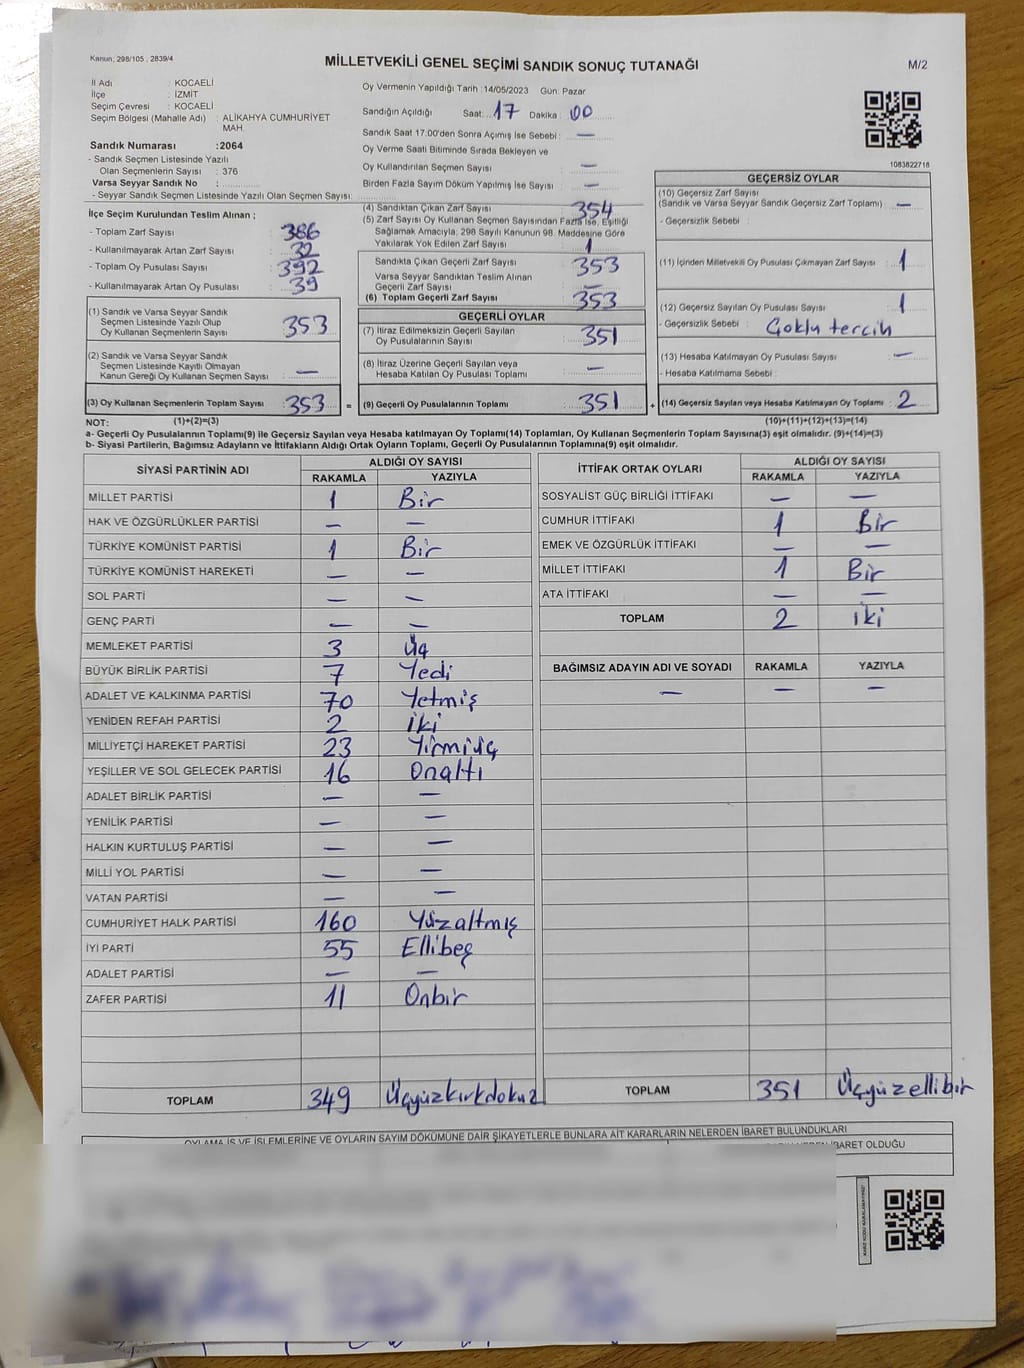 Kanun: 298/105 , 2839/4
MİLLETVEKİLİ GENEL SEÇİMİ SANDIK SONUÇ TUTANAĞI
M/2
İl Adı : KOCAELİ
İlçe : İZMİT
Seçim Çevresi : KOCAELİ
Seçim Bölgesi (Mahalle Adı) : ALİKAHYA CUMHURİYET
MAH.
Sandık Numarası :2064
- Sandık Seçmen Listesinde Yazılı
Olan Seçmenlerin Sayısı : 376
Varsa Seyyar Sandık No :
- Seyyar Sandık Seçmen Listesinde Yazılı Olan Seçmen Sayısı:
Oy Vermenin Yapıldığı Tarih :14/05/2023 Gün: Pazar
Sandığın Açıldığı Saat: 17 Dakika : 00
Sandık Saat 17.00'den Sonra Açımış İse Sebebi : —
Oy Verme Saati Bitiminde Sırada Bekleyen ve
Oy Kullandırılan Seçmen Sayısı —
Birden Fazla Sayım Döküm Yapılmış İse Sayısı —
1083822718
İlçe Seçim Kurulundan Teslim Alınan ;
- Toplam Zarf Sayısı : 386
- Kullanılmayarak Artan Zarf Sayısı : 32
- Toplam Oy Pusulası Sayısı : 392
- Kullanılmayarak Artan Oy Pusulası : 39
(1) Sandık ve Varsa Seyyar Sandık
Seçmen Listesinde Yazılı Olup
Oy Kullanan Seçmenlerin Sayısı : 353
(2) Sandık ve Varsa Seyyar Sandık
Seçmen Listesinde Kayıtlı Olmayan
Kanun Gereği Oy Kullanan Seçmen Sayısı : —
(3) Oy Kullanan Seçmenlerin Toplam Sayısı : 353 =
(4) Sandıktan Çıkan Zarf Sayısı 354
(5) Zarf Sayısı Oy Kullanan Seçmen Sayısından Fazla İse, Eşitliği
Sağlamak Amacıyla; 298 Sayılı Kanunun 98. Maddesine Göre
Yakılarak Yok Edilen Zarf Sayısı : 1
Sandıkta Çıkan Geçerli Zarf Sayısı : 353
Varsa Seyyar Sandıktan Teslim Alınan
Geçerli Zarf Sayısı : —
(6) Toplam Geçerli Zarf Sayısı : 353
GEÇERLİ OYLAR
(7) İtiraz Edilmeksizin Geçerli Sayılan
Oy Pusulalarının Sayısı : 351
(8) İtiraz Üzerine Geçerli Sayılan veya
Hesaba Katılan Oy Pusulası Toplamı : —
(9) Geçerli Oy Pusulalarının Toplamı : 351 +
GEÇERSİZ OYLAR
(10) Geçersiz Zarf Sayısı
(Sandık ve Varsa Seyyar Sandık Geçersiz Zarf Toplamı) : —
-Geçersizlik Sebebi :
(11) İçinden Milletvekili Oy Pusulası Çıkmayan Zarf Sayısı : 1
(12) Geçersiz Sayılan Oy Pusulası Sayısı : 1
- Geçersizlik Sebebi : Çoklu tercih
(13) Hesaba Katılmayan Oy Pusulası Sayısı : —
- Hesaba Katılmama Sebebi :
(14) Geçersiz Sayılan veya Hesaba Katılmayan Oy Toplamı : 2
NOT: (1)+(2)=(3) (10)+(11)+(12)+(13)=(14)
a- Geçerli Oy Pusulalarının Toplamı(9) ile Geçersiz Sayılan veya Hesaba katılmayan Oy Toplamı(14) Toplamları, Oy Kullanan Seçmenlerin Toplam Sayısına(3) eşit olmalıdır. (9)+(14)=(3)
b- Siyasi Partilerin, Bağımsız Adayların ve İttifakların Aldığı Ortak Oyların Toplamı, Geçerli Oy Pusulalarının Toplamına(9) eşit olmalıdır.
SİYASİ PARTİNİN ADI ALDIĞI OY SAYISI
RAKAMLA YAZIYLA
MİLLET PARTİSİ 1 Bir
HAK VE ÖZGÜRLÜKLER PARTİSİ — —
TÜRKİYE KOMÜNİST PARTİSİ 1 Bir
TÜRKİYE KOMÜNİST HAREKETİ — —
SOL PARTİ — —
GENÇ PARTİ — —
MEMLEKET PARTİSİ 3 Üç
BÜYÜK BİRLİK PARTİSİ 7 Yedi
ADALET VE KALKINMA PARTİSİ 70 Yetmiş
YENİDEN REFAH PARTİSİ 2 iki
MİLLİYETÇİ HAREKET PARTİSİ 23 Yirmiüç
YEŞİLLER VE SOL GELECEK PARTİSİ 16 Onaltı
ADALET BİRLİK PARTİSİ — —
YENİLİK PARTİSİ — —
HALKIN KURTULUŞ PARTİSİ — —
MİLLİ YOL PARTİSİ — —
VATAN PARTİSİ — —
CUMHURİYET HALK PARTİSİ 160 Yüzaltmış
İYİ PARTİ 55 Ellibeş
ADALET PARTİSİ — —
ZAFER PARTİSİ 11 Onbir
TOPLAM 349 Üçyüzkırkdokuz
İTTİFAK ORTAK OYLARI ALDIĞI OY SAYISI
RAKAMLA YAZIYLA
SOSYALİST GÜÇ BİRLİĞİ İTTİFAKI — —
CUMHUR İTTİFAKI 1 Bir
EMEK VE ÖZGÜRLÜK İTTİFAKI — —
MİLLET İTTİFAKI 1 Bir
ATA İTTİFAKI — —
TOPLAM 2 iki
BAĞIMSIZ ADAYIN ADI VE SOYADI RAKAMLA YAZIYLA
— — —
TOPLAM 351 Üçyüzellibir
OYLAMA İŞ VE İŞLEMLERİNE VE OYLARIN SAYIM DÖKÜMÜNE DAİR ŞİKAYETLERLE BUNLARA AİT KARARLARIN NELERDEN İBARET BULUNDUKLARI
İBARET OLDUĞU